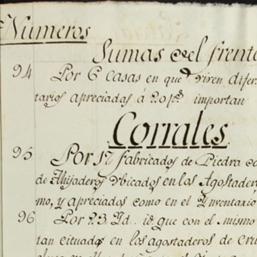 Numeros
Sumas del frente
94 Por 6 Casas en que viven difer
tarios apreciados á 20 p.s importan
Corrales
95 Por 17 fabricados de Piedra
de Ahijaderos ubicados en los Agostader
mo, y apreciados como en el Inventario
96 Por 23 Yd. id que con el mismo
tan cituados en los agostaderos de